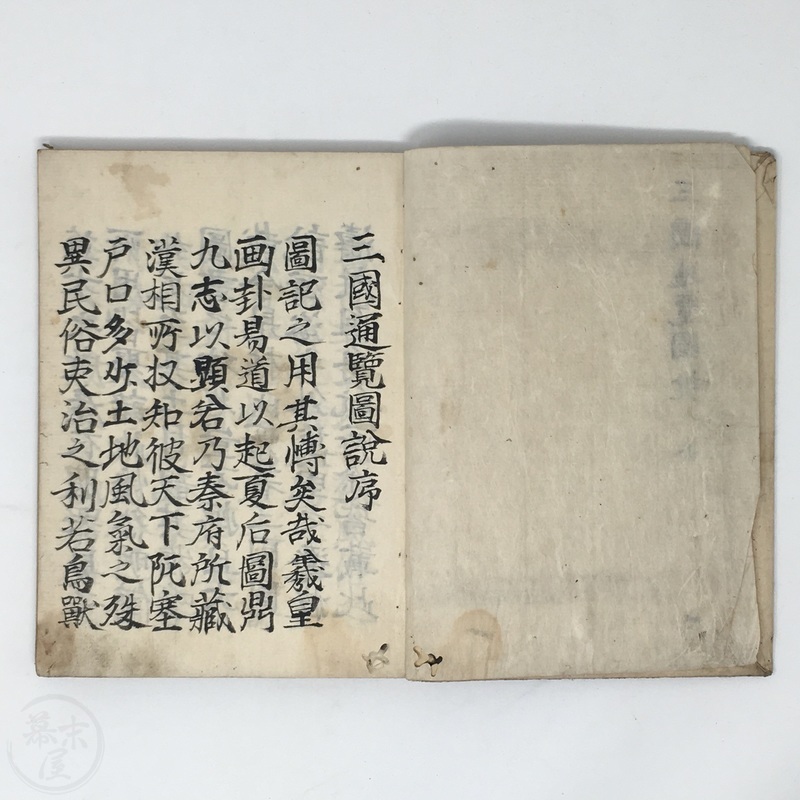 三國通覽圖說序
圖記之用其愽矣哉羲皇
画卦易道以起夏后圖鼎
九志以顕若乃秦府所藏
漢相所収知彼天下阨塞
戸口多少土地風氣之殊
異民俗吏治之利若鳥獸
幕末屋